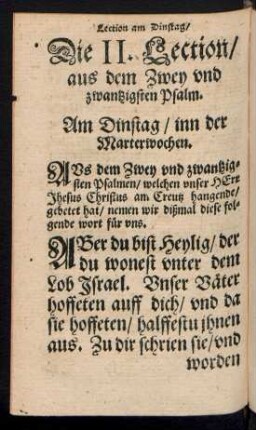 Lection am Dinstag/
Die II. Lection/
aus dem Zwey vnd
zwantzigsten Psalm.
Am Dinstag / inn der
Marterwochen.
AVs dem Zwey vnd zwantzig-
sten Psalmen/ welchen vnser HErr
Jhesus Christus am Creutz hangende/
gebetet hat/ nemen wir dißmal diese fol-
gende wort für vns.
ABer du bist Heylig/ der
du wonest vnter dem
Lob Israel. Vnser Väter
hoffeten auff dich/ vnd da
sie hoffeten/ halffestu jhnen
aus. Zu dir schrien sie/ vnd
worden